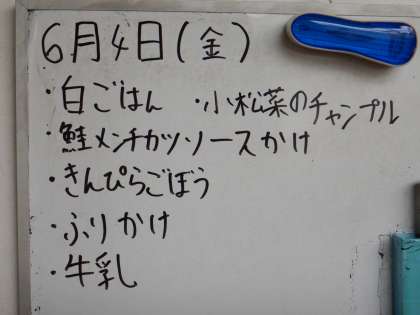 6月4日(金)
・白ごはん ・小松菜のチャンプル
・鮭メンチカツソースかけ
・きんぴらごぼう
・ふりかけ
・牛乳